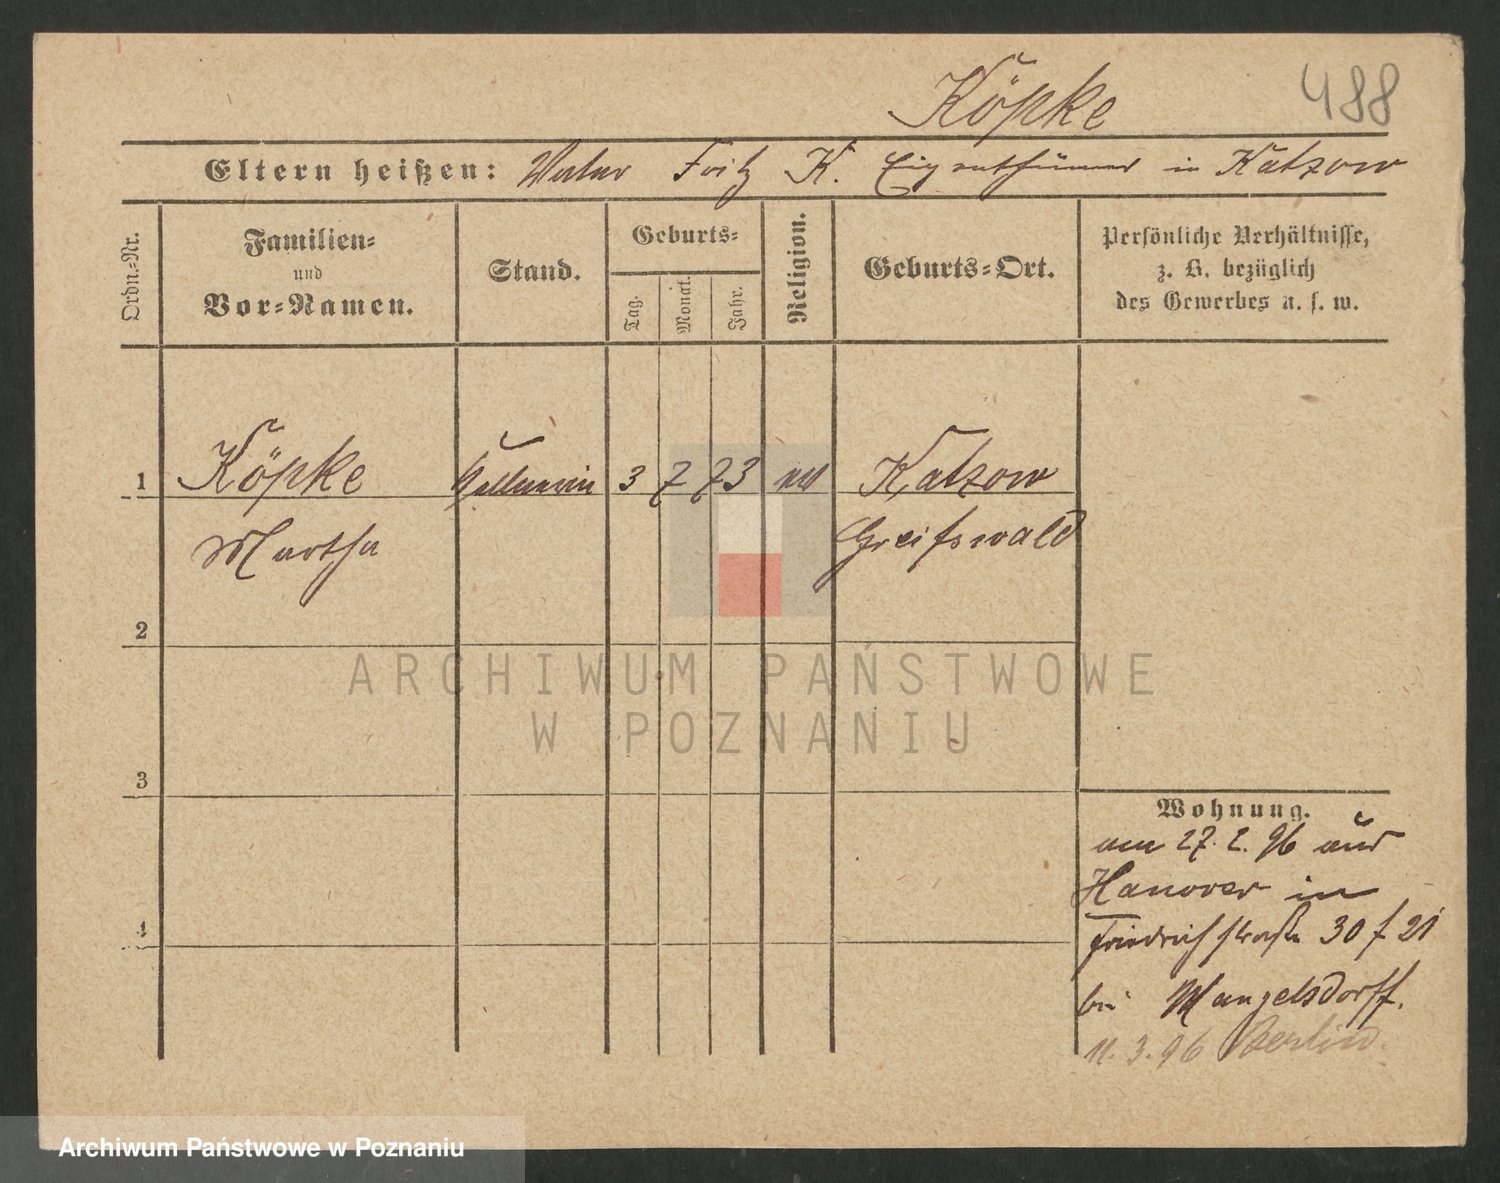 Köpke 488
Eltern heißen: Vater Fritz K. Eigenthümer in Katzow
Ordn.-Nr.
Familien-
und
Vor-Namen.
Stand.
Geburts-
Tag.
Monat.
Jahr.
Religion.
Geburts-Ort.
Persönliche Verhältnisse,
z. B. bezüglich
des Gewerbes u. s. w.
1 Köpke Kellnerin 3 7 73 Katzow
Martha Greifswald
2
3
4
Wohnung.
am 27. 2. 96 aus
Hanover in
Friedrichstraße 30 f 21
bei Mangelsdorff.
11. 3. 96 Berlin.
ARCHIWUM PAŃSTWOWE
W POZNANIU
Archiwum Państwowe w Poznaniu